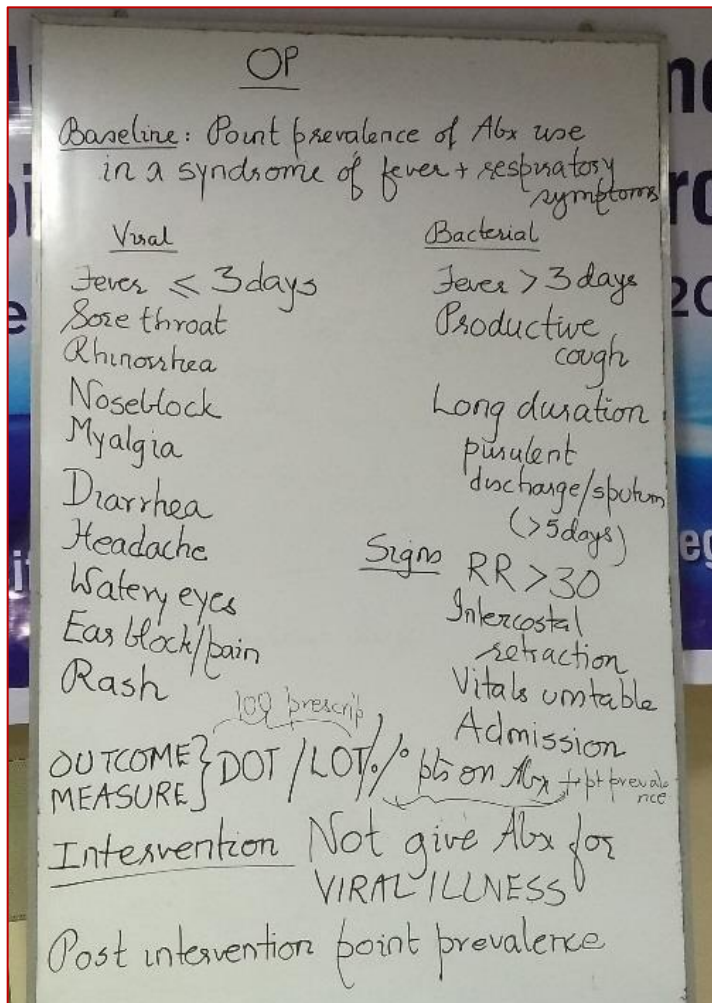 OP
Baseline: Point prevalence of Abx use
in a syndrome of fever + respiratory
symptoms
Viral
Fever ≤ 3 days
Sore throat
Rhinorrhea
Noseblock
Myalgia
Diarrhea
Headache
Watery eyes
Ear block/pain
Rash
Bacterial
Fever > 3 days
Productive
cough
Long duration
purulent
discharge/sputum
(>5days)
Signs RR > 30
Intercostal
retraction
Vitals unstable
Admission
100 prescrip
OUTCOME
MEASURE } DOT / LOT / % pts on Abx + pt prevale
nce
Intervention Not give Abx for
VIRAL ILLNESS
Post intervention point prevalence